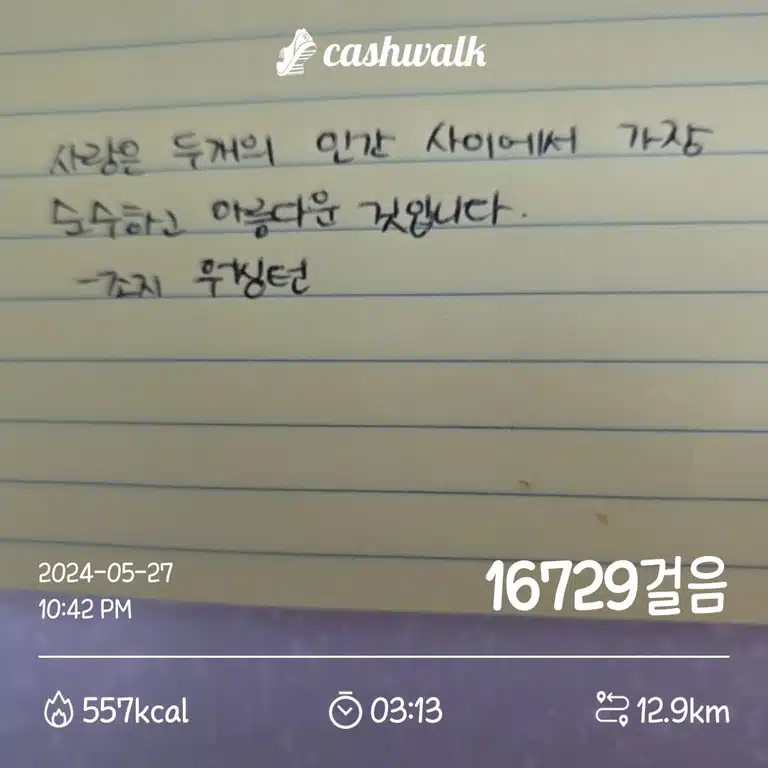 cashwalk
사랑은 두개의 인간 사이에서 가장
순수하고 아름다운 것입니다.
-조지 워싱턴
2024-05-27
10:42 PM
16729걸음
557kcal
03:13
12.9km